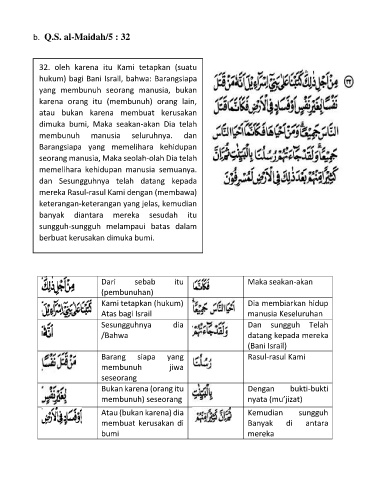 b. Q.S. al-Maidah/5 : 32
32. oleh karena itu Kami tetapkan (suatu
hukum) bagi Bani Israil, bahwa: Barangsiapa
yang membunuh seorang manusia, bukan
karena orang itu (membunuh) orang lain,
atau bukan karena membuat kerusakan
dimuka bumi, Maka seakan-akan Dia telah
membunuh manusia seluruhnya. dan
Barangsiapa yang memelihara kehidupan
seorang manusia, Maka seolah-olah Dia telah
memelihara kehidupan manusia semuanya.
dan Sesungguhnya telah datang kepada
mereka Rasul-rasul Kami dengan (membawa)
keterangan-keterangan yang jelas, kemudian
banyak diantara mereka sesudah itu
sungguh-sungguh melampaui batas dalam
berbuat kerusakan dimuka bumi.
مِنْ اَجْلِ ذٰلِكَ كَتَبْنَا عَلٰى بَنِيْٓ اِسْرَاۤءِيْلَ اَنَّهٗ مَنْ قَتَلَ
نَفْسًا بِغَيْرِ نَفْسٍ اَوْ فَسَادٍ فِى الْاَرْضِ فَكَاَنَّمَا قَتَلَ
النَّاسَ جَمِيْعًا وَمَنْ اَحْيَاهَا فَكَاَنَّمَآ اَحْيَا النَّاسَ
جَمِيْعًا وَلَقَدْ جَاۤءَتْهُمْ رُسُلُنَا بِالْبَيِّنٰتِ ثُمَّ اِنَّ
كَثِيْرًا مِّنْهُمْ بَعْدَ ذٰلِكَ فِى الْاَرْضِ لَمُسْرِفُوْنَ
مِنْ اَجْلِ ذٰلِكَ Dari sebab itu (pembunuhan) فَكَاَنَّمَا Maka seakan-akan
كَتَبْنَا عَلٰى بَنِيْٓ اِسْرَاۤءِيْلَ Kami tetapkan (hukum) Atas bagi Israil اَحْيَا النَّاسَ جَمِيْعًا Dia membiarkan hidup manusia Keseluruhan
اَنَّهٗ Sesungguhnya dia /Bahwa وَلَقَدْ جَاۤءَتْهُمْ Dan sungguh Telah datang kepada mereka (Bani Israil)
مَنْ قَتَلَ نَفْسًا Barang siapa yang membunuh jiwa seseorang رُسُلُنَا Rasul-rasul Kami
بِغَيْرِ نَفْسٍ Bukan karena (orang itu membunuh) seseorang بِالْبَيِّنٰتِ Dengan bukti-bukti nyata (mu'jizat)
اَوْ فَسَادٍ فِى الْاَرْضِ Atau (bukan karena) dia membuat kerusakan di bumi ثُمَّ اِنَّ كَثِيْرًا مِّنْهُمْ Kemudian sungguh Banyak di antara mereka